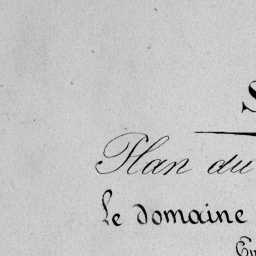 Plan du
Le domaine